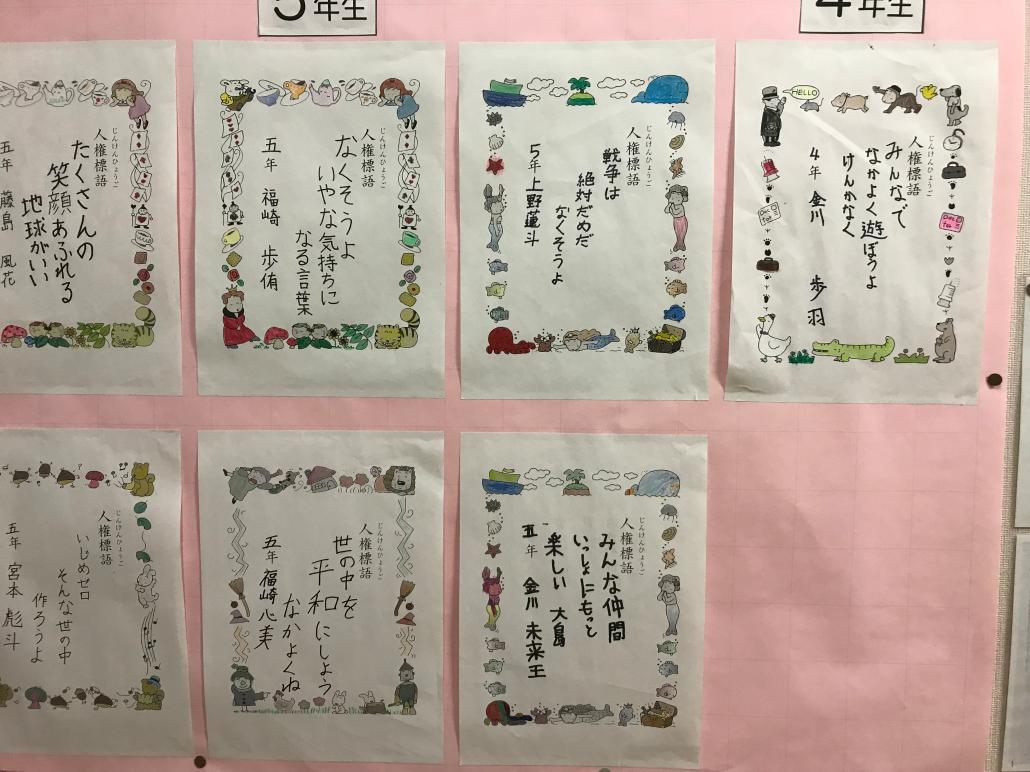 5年生
4年生
人権標語
じんけんひょうご
たくさんの
笑顔あふれる
地球がいい
五年 藤島 風花
人権標語
じんけんひょうご
なくそうよ
いやな気持ちに
なる言葉
五年 福崎 歩侑
人権標語
じんけんひょうご
戦争は
絶対だめだ
なくそうよ
5年 上野蓮斗
HELLO
人権標語
じんけんひょうご
みんなで
なかよく遊ぼうよ
けんかなく
4年 金川 歩羽
人権標語
じんけんひょうご
いじめゼロ
そんな世の中
作ろうよ
五年 宮本 彪斗
人権標語
じんけんひょうご
世の中を
平和にしよう
なかよくね
五年 福崎心美
人権標語
じんけんひょうご
みんな仲間
いっしょにもっと
楽しい 大島
五年 金川 未来王